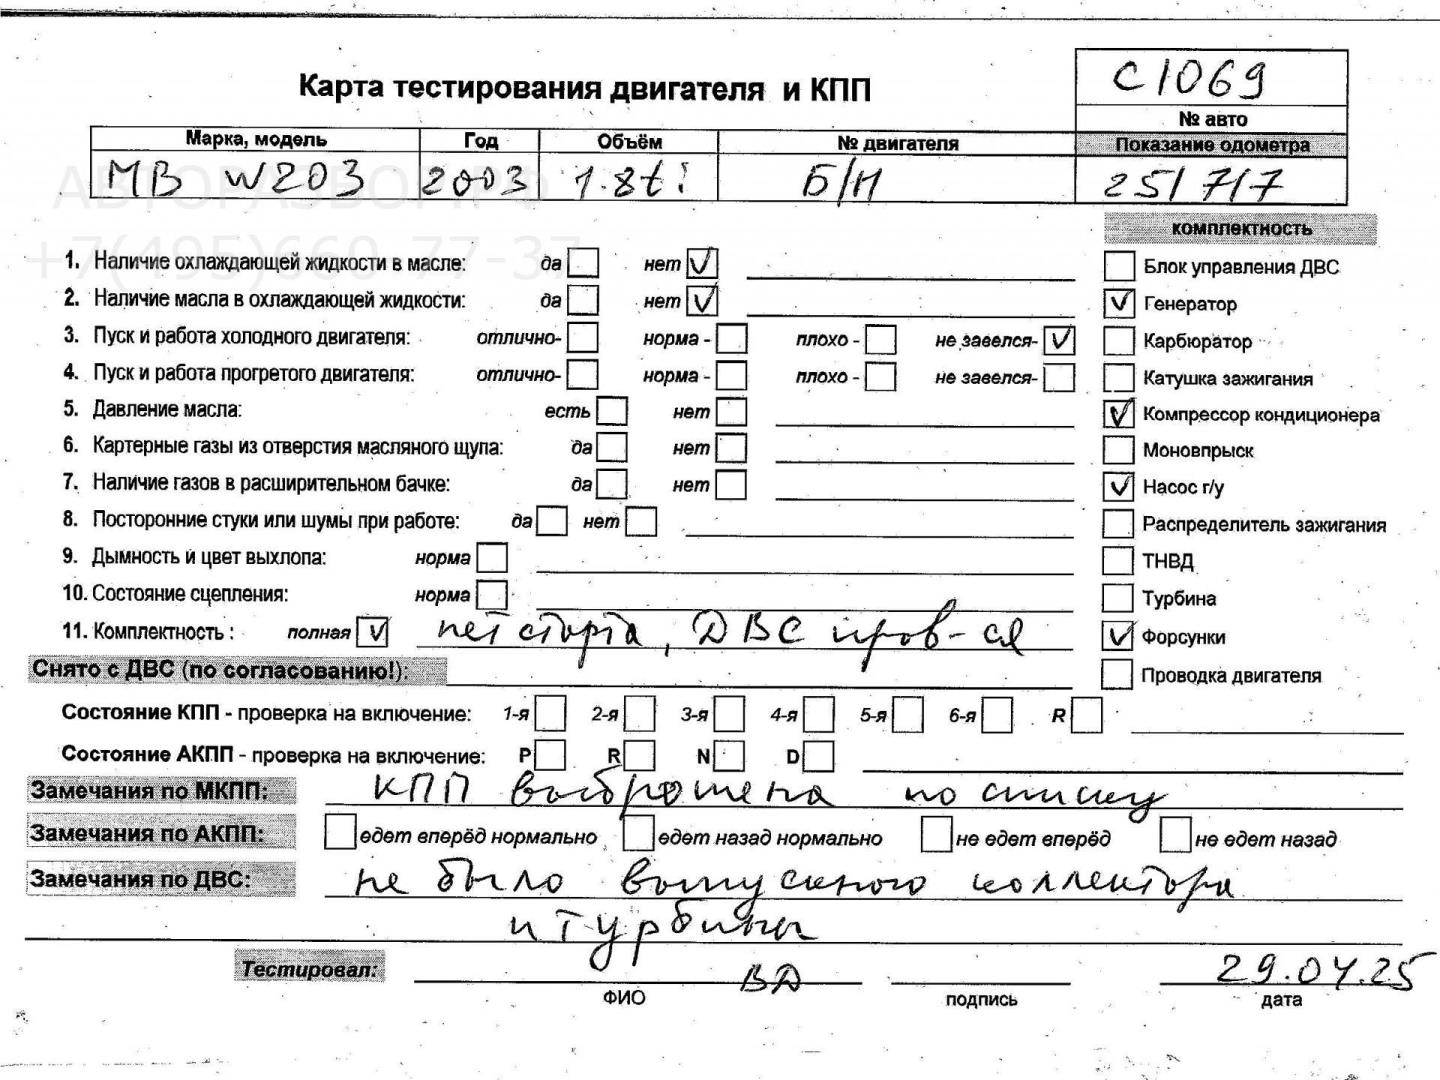 С1069
Карта тестирования двигателя и КПП
№ авто
Марка, модель Год Объём № двигателя Показание одометра
МВ W203 2003 1.8ti Б/Н 251717
АВТОРАЗБОР.РФ
+7(495)660-77-37
комплектность
1. Наличие охлаждающей жидкости в масле: да нет ✓
Блок управления ДВС
2. Наличие масла в охлаждающей жидкости: да нет ✓
✓ Генератор
3. Пуск и работа холодного двигателя: отлично- норма - плохо - не завелся- ✓
Карбюратор
4. Пуск и работа прогретого двигателя: отлично- норма - плохо - не завелся-
Катушка зажигания
5. Давление масла: есть нет
✓ Компрессор кондиционера
6. Картерные газы из отверстия масляного щупа: да нет
Моновпрыск
7. Наличие газов в расширительном бачке: да нет
✓ Насос г/у
8. Посторонние стуки или шумы при работе: да нет
Распределитель зажигания
9. Дымность и цвет выхлопа: норма
ТНВД
10. Состояние сцепления: норма
Турбина
11. Комплектность : полная ✓ нет старта, ДВС пров-ся
✓ Форсунки
Снято с ДВС (по согласованию!):
Проводка двигателя
Состояние КПП - проверка на включение: 1-я 2-я 3-я 4-я 5-я 6-я R
Состояние АКПП - проверка на включение: P R N D
Замечания по МКПП: КПП выброшена по списку
Замечания по АКПП: едет вперёд нормально едет назад нормально не едет вперёд не едет назад
Замечания по ДВС: не было выпускного коллектора
и турбины
Тестировал: ВД 29.04.25
ФИО подпись дата